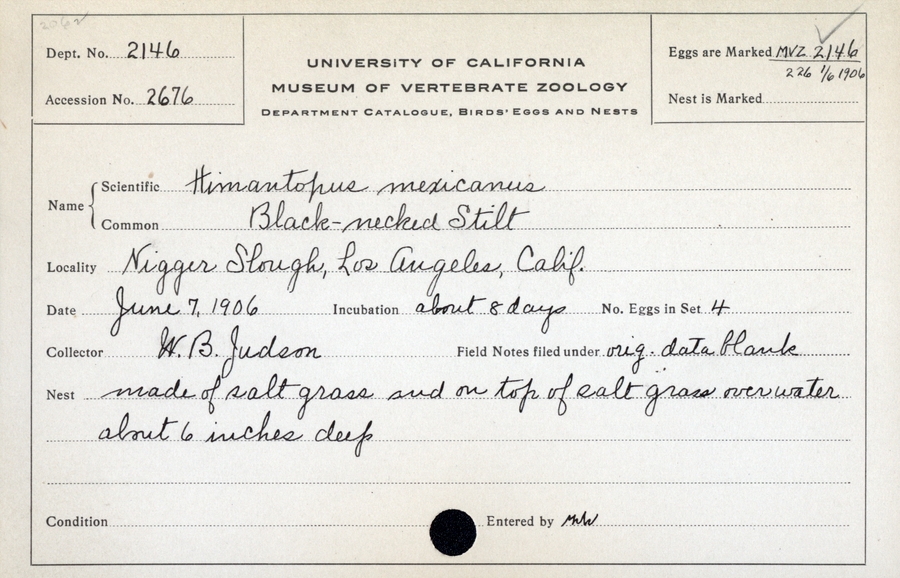 2062
Dept. No. 2146
Accession No. 2676
UNIVERSITY OF CALIFORNIA
MUSEUM OF VERTEBRATE ZOOLOGY
DEPARTMENT CATALOGUE, BIRDS' EGGS AND NESTS
Eggs are Marked MVZ 2146
226 1/6 1906
Nest is Marked
Name
Scientific Himantopus mexicanus
Common Black-necked Stilt
Locality Nigger Slough, Los Angeles, Calif.
Date June 7, 1906 Incubation about 8 days No. Eggs in Set 4
Collector W. B. Judson Field Notes filed under orig. data blank
Nest made of salt grass and on top of salt grass over water
about 6 inches deep
Condition Entered by